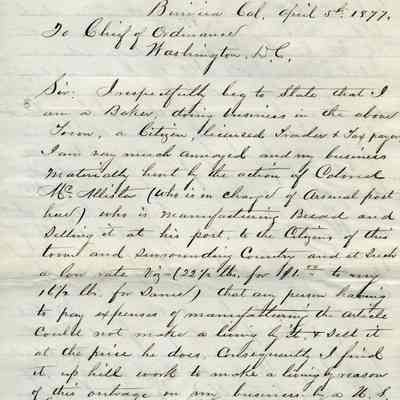 Benicia Cal. April 5th 1877.
To Chief of Ordnance
Washington, D.C.
Sir: I respectfully beg to State that I
am a Baker, doing business in the above
Town, a Citizen, licensed Trader & Tax payer
I am very much annoyed and my business
materially hurt by the action of Colonel
McAllister (who is in charge of Arsenal post
here) who is manufacturing Bread and
Selling it at his post, to the Citizens of this
town and surrounding Country and at Such
a low rate Viz - (22½ lbs. for $1.00 to my
16½ lbs. for Same) that any person having
to pay expenses of manufacturing the article
Could not make a living by it, & Sell it
at the price he does. Consequently I find
it up hill work to make a living by reason
of this outrage on my business by a U.S.